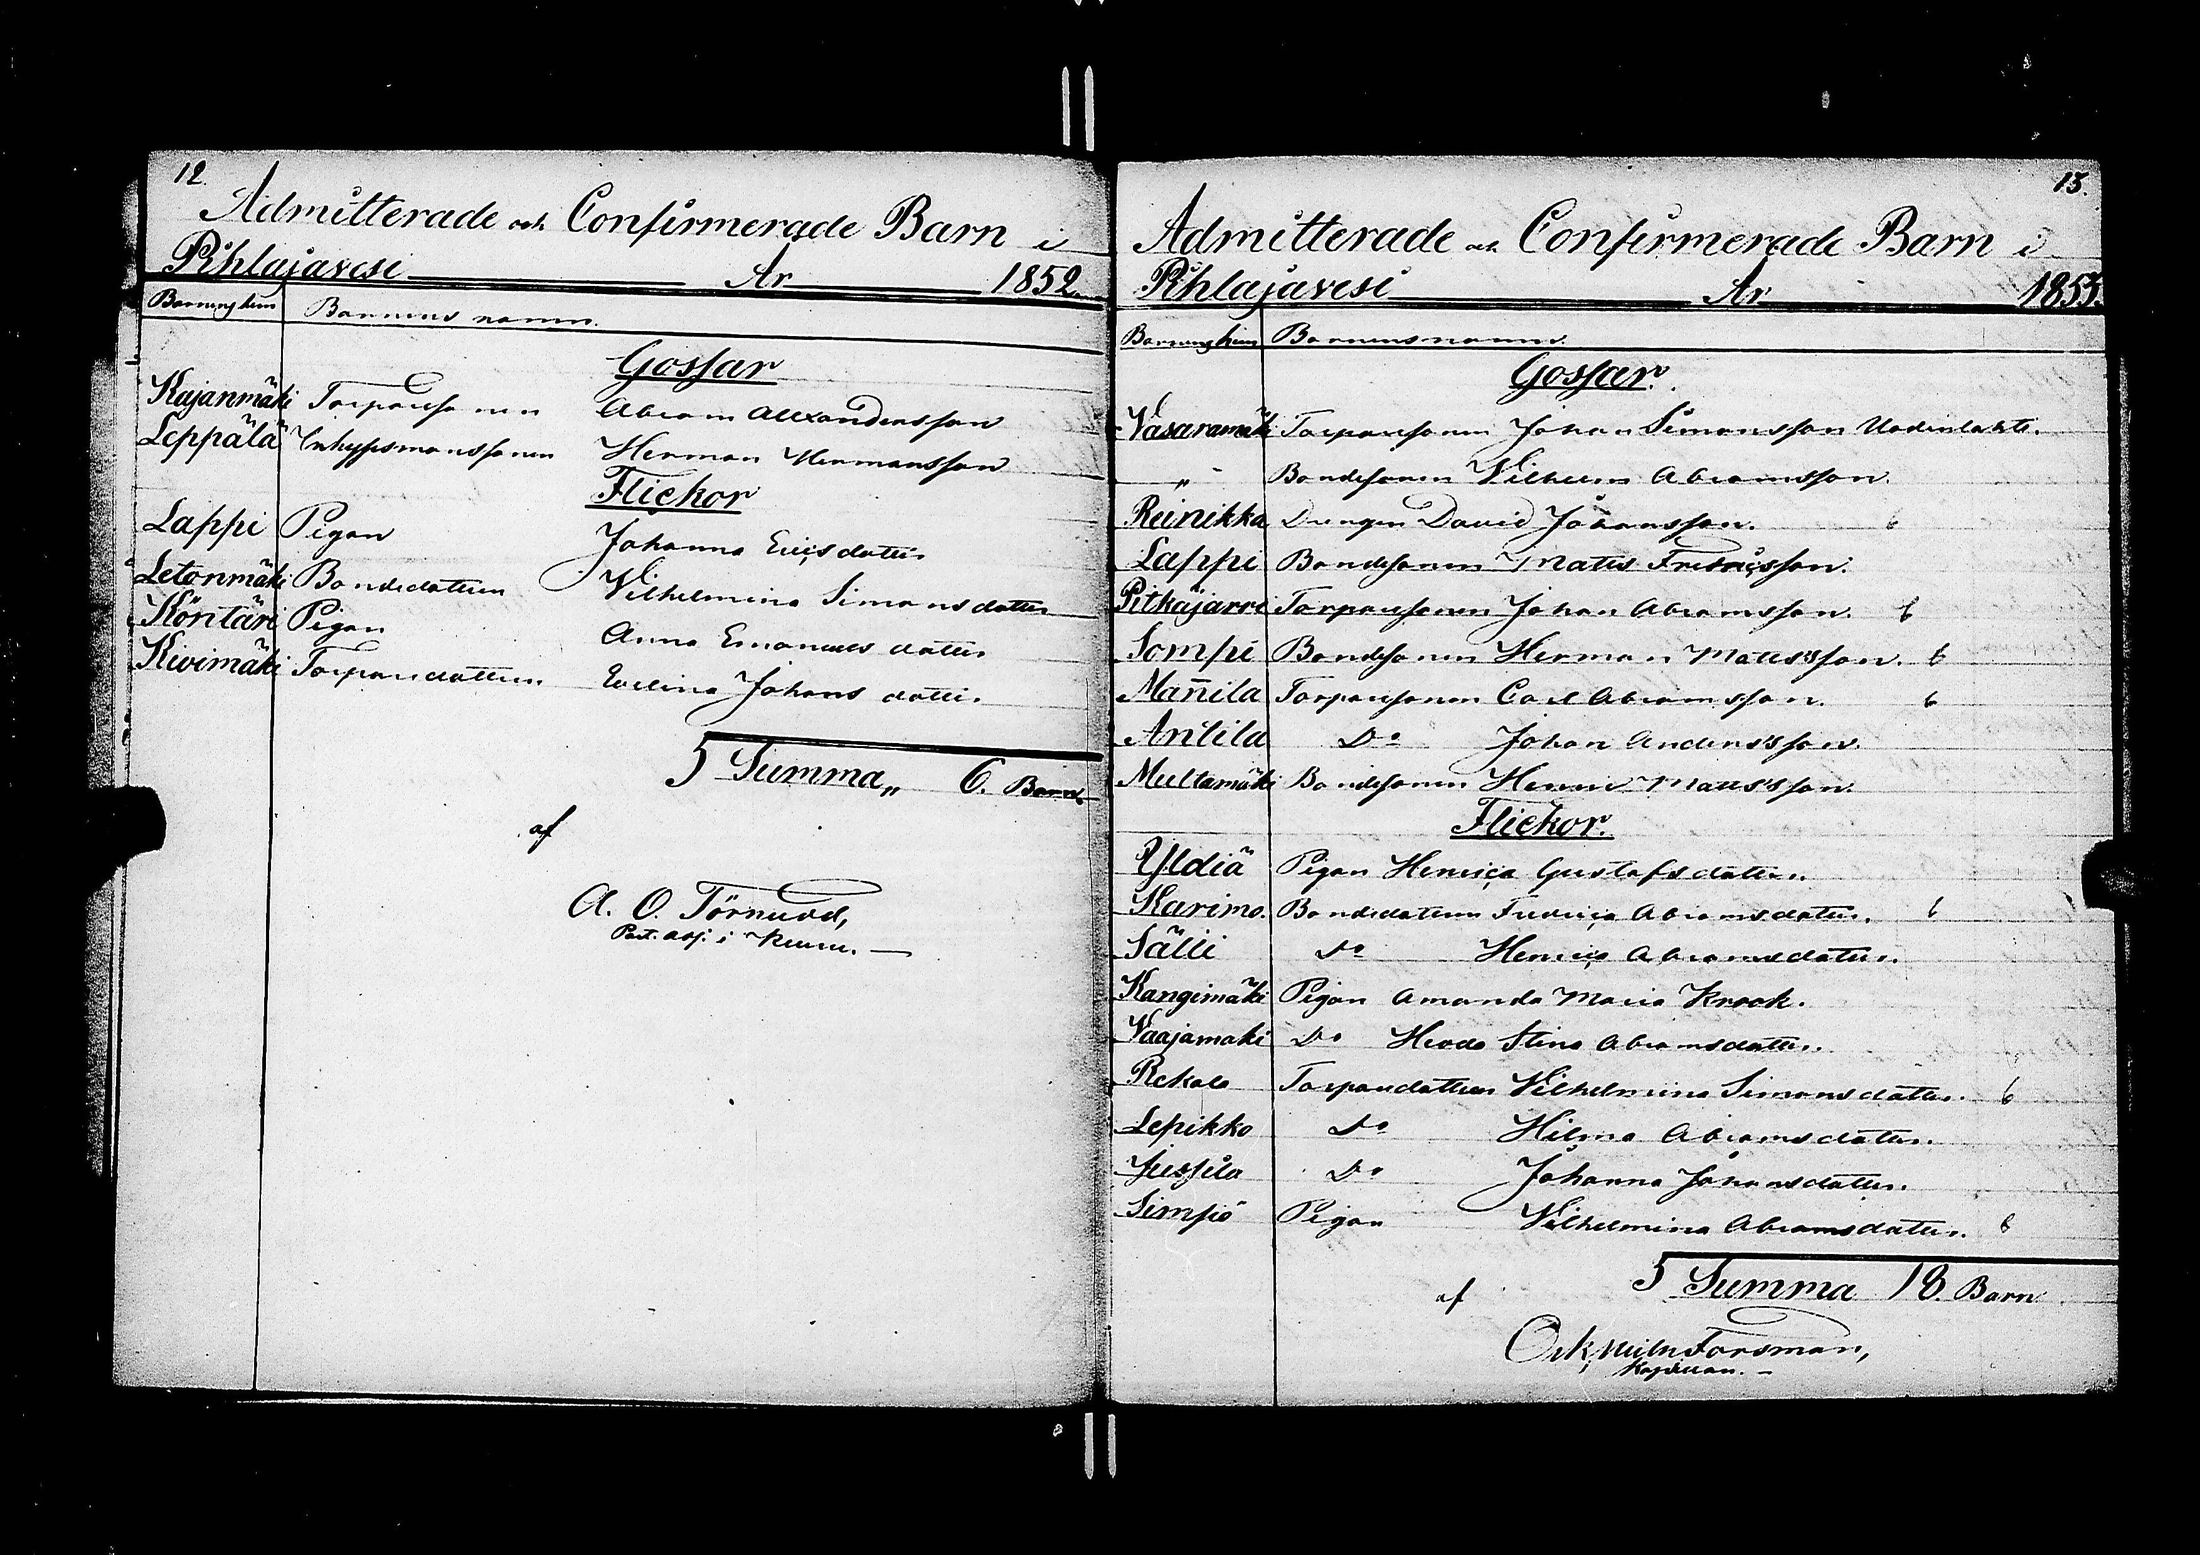 12.
Admitterade och Confirmerade Barn i
Pihlajavesi År 1852.
Barnens hem Barnens namn.
Gossar
Kajanmäki Torparesonen Abram Alexandersson
Leppälä Inhysesmanssonen Herman Hermansson
Flickor
Lappi Pigan Johanna Ericsdotter
Letonmäki Bondedottren Vilhelmina Simonsdotter
Köntäri Pigan Anna Emanuels dotter
Kivimäki Torparedottren Evelina Johans dotter.
S Summa „ 6. Barn
af
A. O. Törnudd,
Past. adj. i Keuru. —
13.
Admitterade och Confirmerade Barn i
Pihlajavesi År 1853.
Barnens hem Barnens namn.
Gossar.
Vasaramäki Torparesonen Johan Simonsson
„ Bondesonen Vilhelm Abramsson.
Reinikka Drengen David Johansson. 6
Lappi Bondesonen Matts Fredricsson.
Pitkäjärvi Torparesonen Johan Abramsson. 6
Sompi Bondesonen Herman Mattsson. 6
Mañila Torparesonen Carl Abramsson. 6
Antila Do Johan Andersson.
Multamäki Bondesonen Henric Mattsson.
Flickor.
Yldiä Pigan Henrica Gustafsdotter.
Karimo. Bondedottren Fredrica Abramsdotter. 6
Sälli Do Henrica Abramsdotter.
Kangimäki Pigan Amanda Maria Krook.
Vaajamaki Do Hedda Stina Abramsdotter.
Rekola Torparedottren Vilhelmina Simonsdotter. 6
Lepikko Do Hilma Abramsdotter.
Jussila Do Johanna Johansdotter.
Simpiö Pigan Vilhelmina Abramsdotter. 6
S Summa 18. Barn
af
Forsman,
Kapellan. —